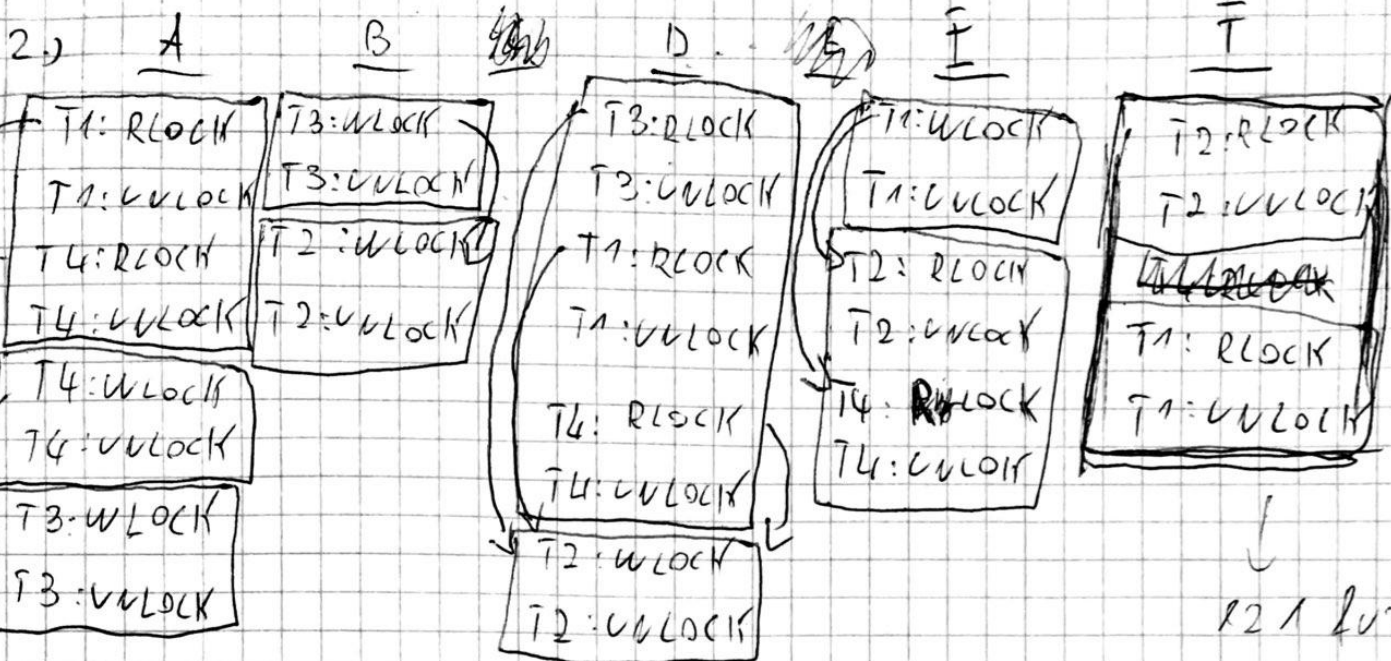 2.)
A
T1: RLOCK
T1: UNLOCK
T4: RLOCK
T4: UNLOCK
T4: WLOCK
T4: UNLOCK
T3: WLOCK
T3: UNLOCK
B
T3: WLOCK
T3: UNLOCK
T2: WLOCK
T2: UNLOCK
D
T3: RLOCK
T3: UNLOCK
T1: RLOCK
T1: UNLOCK
T4: RLOCK
T4: UNLOCK
T2: WLOCK
T2: UNLOCK
T1: WLOCK
T1: UNLOCK
T2: RLOCK
T2: UNLOCK
T4: RLOCK
T4: UNLOK
T2: RLOCK
T2: UNLOCK
T1: RLOCK
T1: UNLOCK